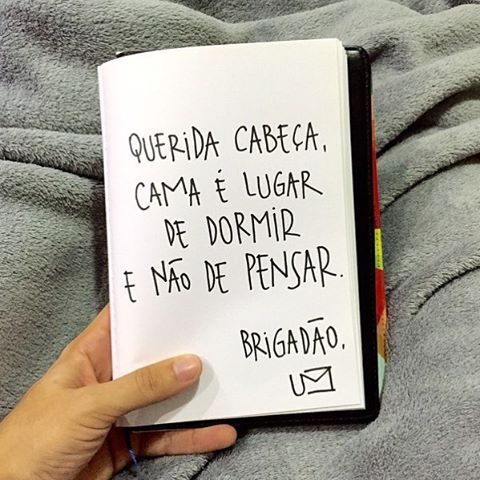 QUERIDA CABEÇA,
CAMA É LUGAR
DE DORMIR
E NÃO DE PENSAR.
BRIGADÃO.
U